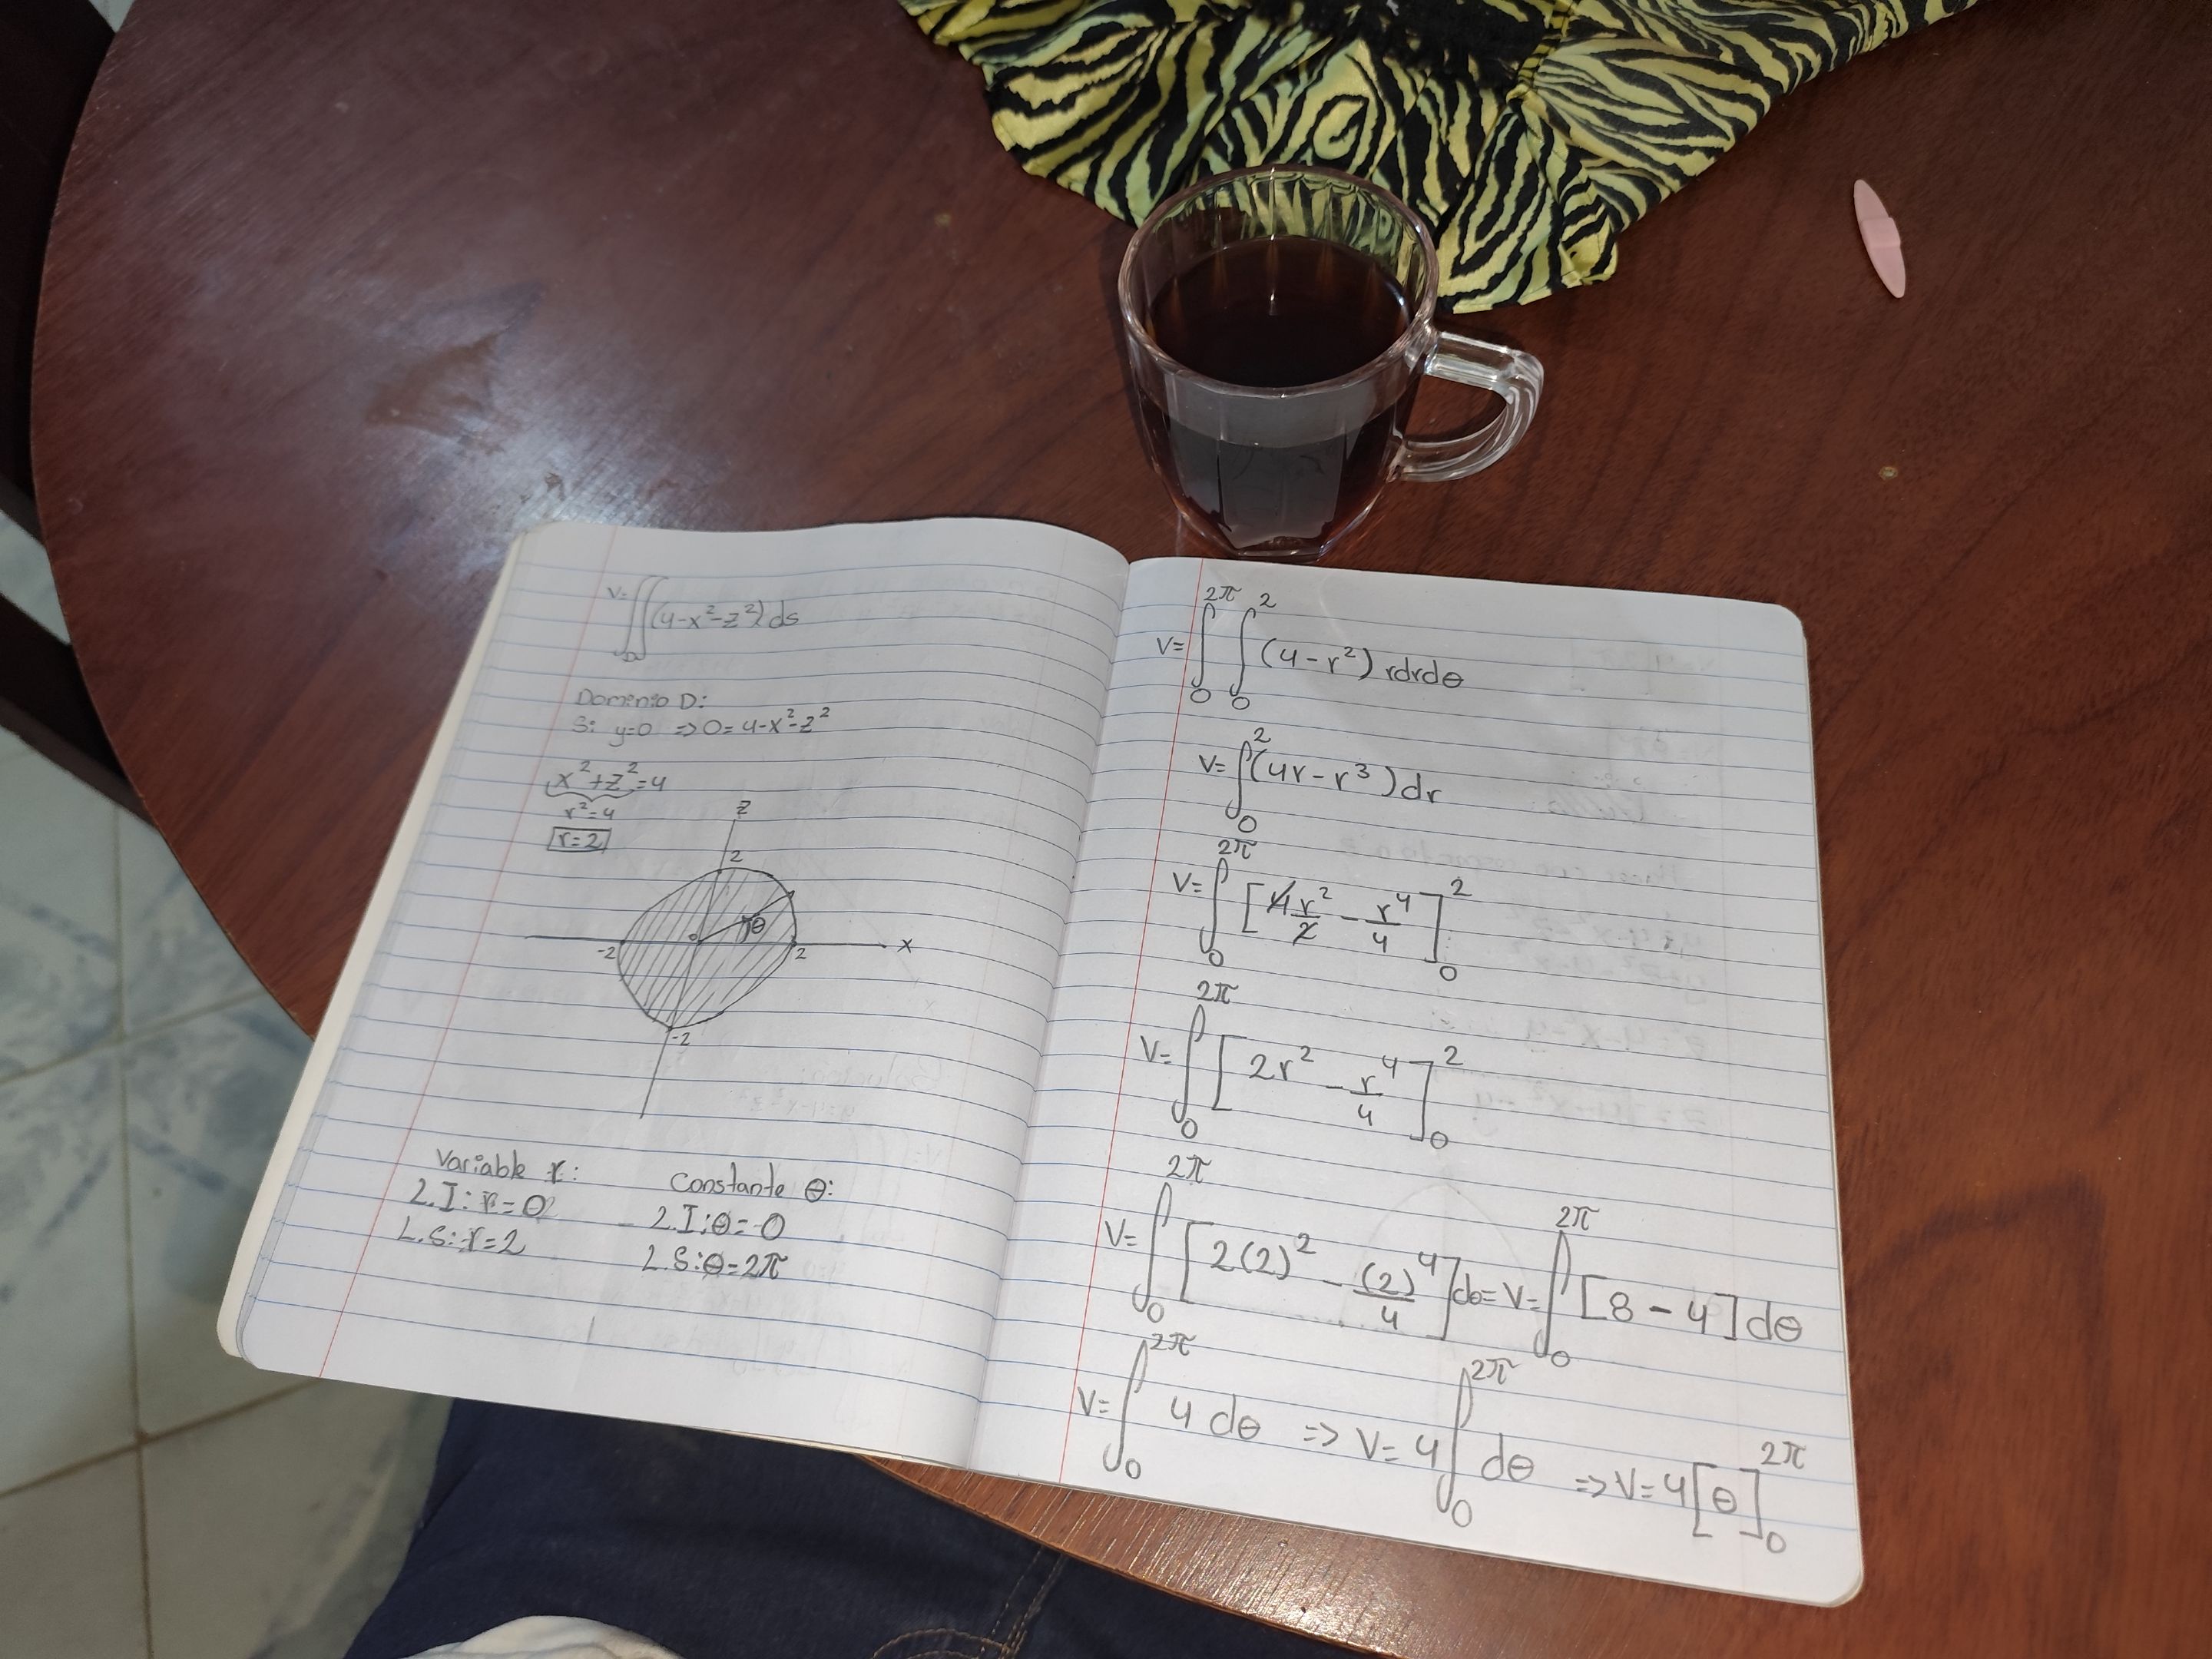 V=∬_D (4-x²-z²) ds
Dominio D:
Si y=0 => 0=4-x²-z²
x²+z²=4
r²=4
r=2
z
2
θ
-2 0 2 x
-2
Variable r:
L.I: r=0
L.S: r=2
Constante θ:
L.I: θ=0
L.S: θ=2π
V=∫₀^2π ∫₀^2 (4-r²) rdrdθ
V=∫₀^2 (4r-r³) dr
V=∫₀^2π [4r²/2 - r⁴/4]₀^2
V=∫₀^2π [2r² - r⁴/4]₀^2
V=∫₀^2π [2(2)² - (2)⁴/4] dθ = V=∫₀^2π [8-4] dθ
V=∫₀^2π 4 dθ => V=4∫₀^2π dθ => V=4[θ]₀^2π